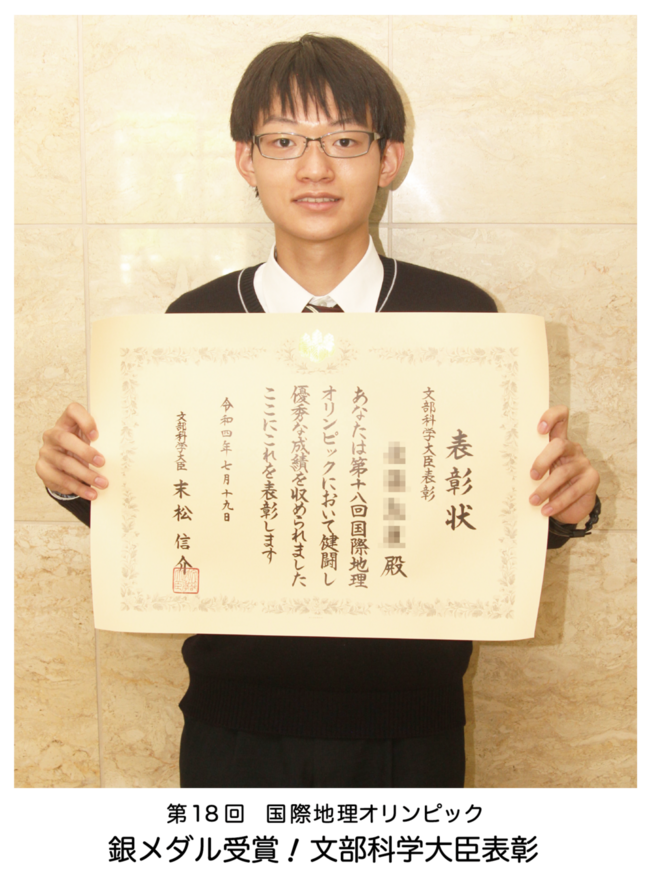 表彰状
文部科学大臣表彰
殿
あなたは第十八回国際地理
オリンピックにおいて健闘し
優秀な成績を収められました
ここにこれを表彰します
令和四年七月十九日
文部科学大臣 末松信介
第18回 国際地理オリンピック
銀メダル受賞！文部科学大臣表彰